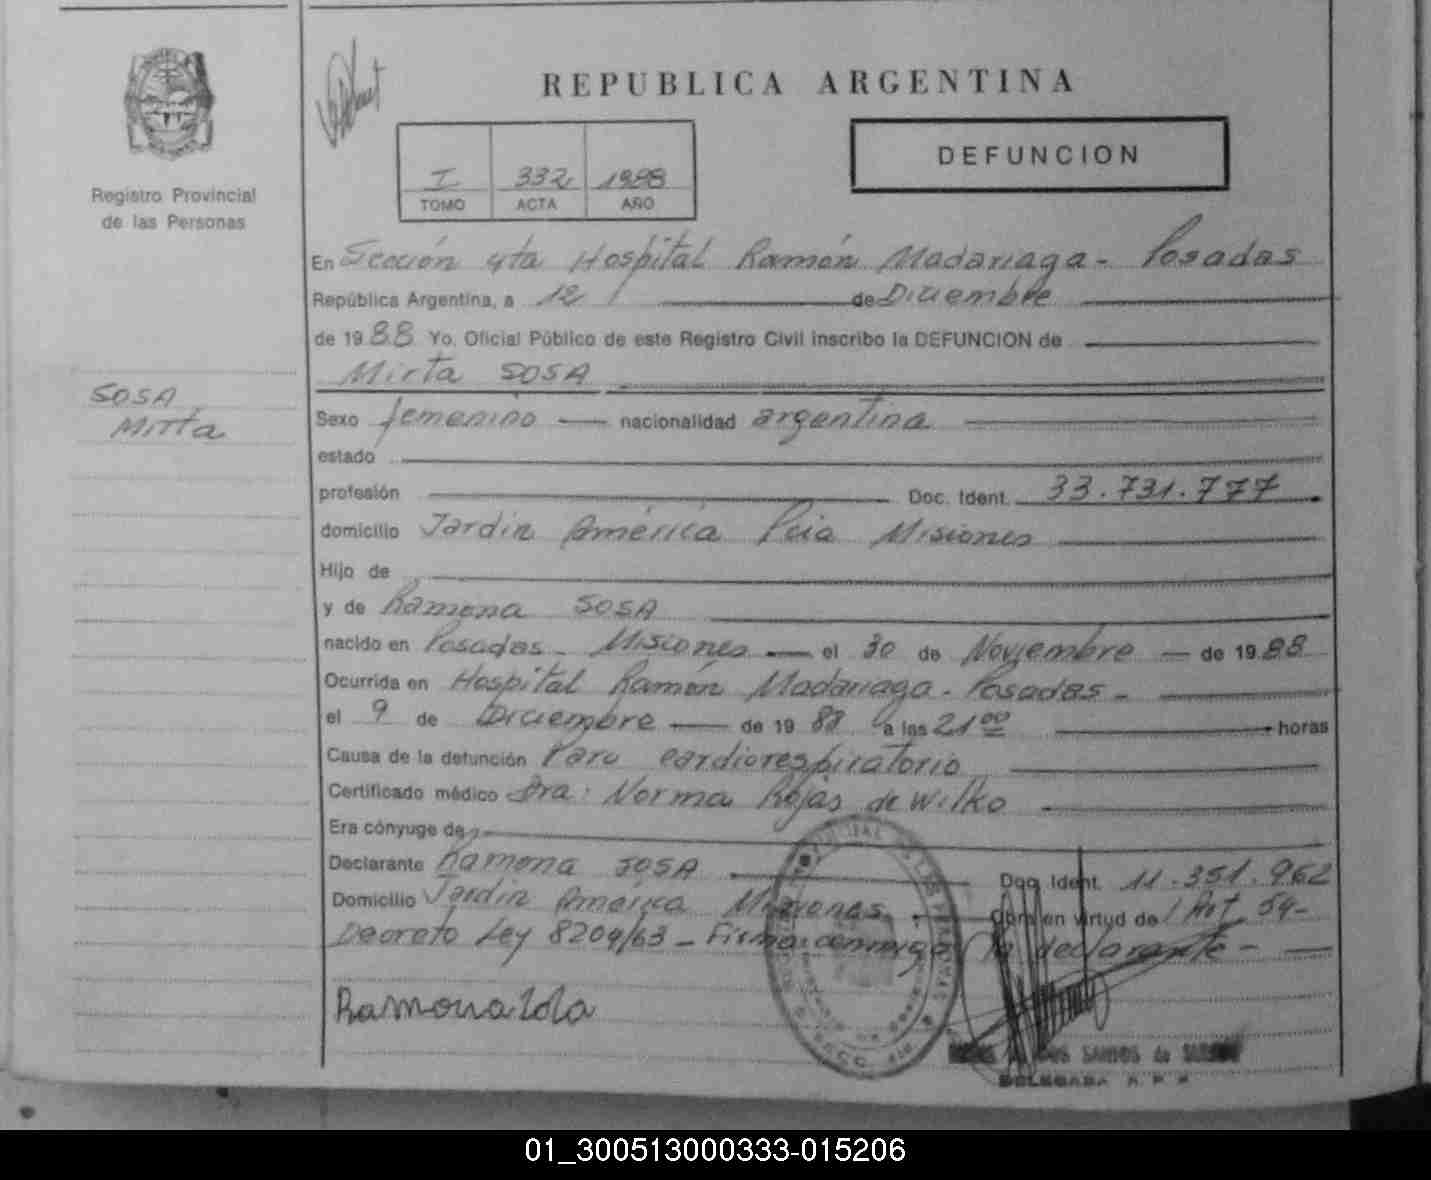 REPUBLICA ARGENTINA
DEFUNCION
Registro Provincial
de las Personas
I 332 1988
TOMO ACTA AÑO
En Sección 4ta Hospital Ramón Madariaga - Posadas
República Argentina, a 12 de Diciembre
de 1988 Yo, Oficial Público de este Registro Civil inscribo la DEFUNCION de
Mirta SOSA
SOSA
Mirta
Sexo femenino nacionalidad argentina
estado
profesión Doc. Ident. 33.731.777
domicilio Jardin América Pcia Misiones
Hijo de
y de Ramona SOSA
nacido en Posadas - Misiones el 30 de Noviembre de 1988
Ocurrida en Hospital Ramón Madariaga - Posadas -
el 9 de Diciembre de 1988 a las 21 00 horas
Causa de la defunción Paro cardiorespiratorio
Certificado médico Dra: Norma Rojas de Wilko
Era cónyuge de
Declarante Ramona SOSA Doc. Ident. 11.351.962
Domicilio Jardin América Misiones Obra en virtud de Art 54-
Decreto Ley 8204/63 - Firma conmigo la declarante -
Ramona
DOS SANTOS de
DELEGADA R. P. P.
01_300513000333-015206